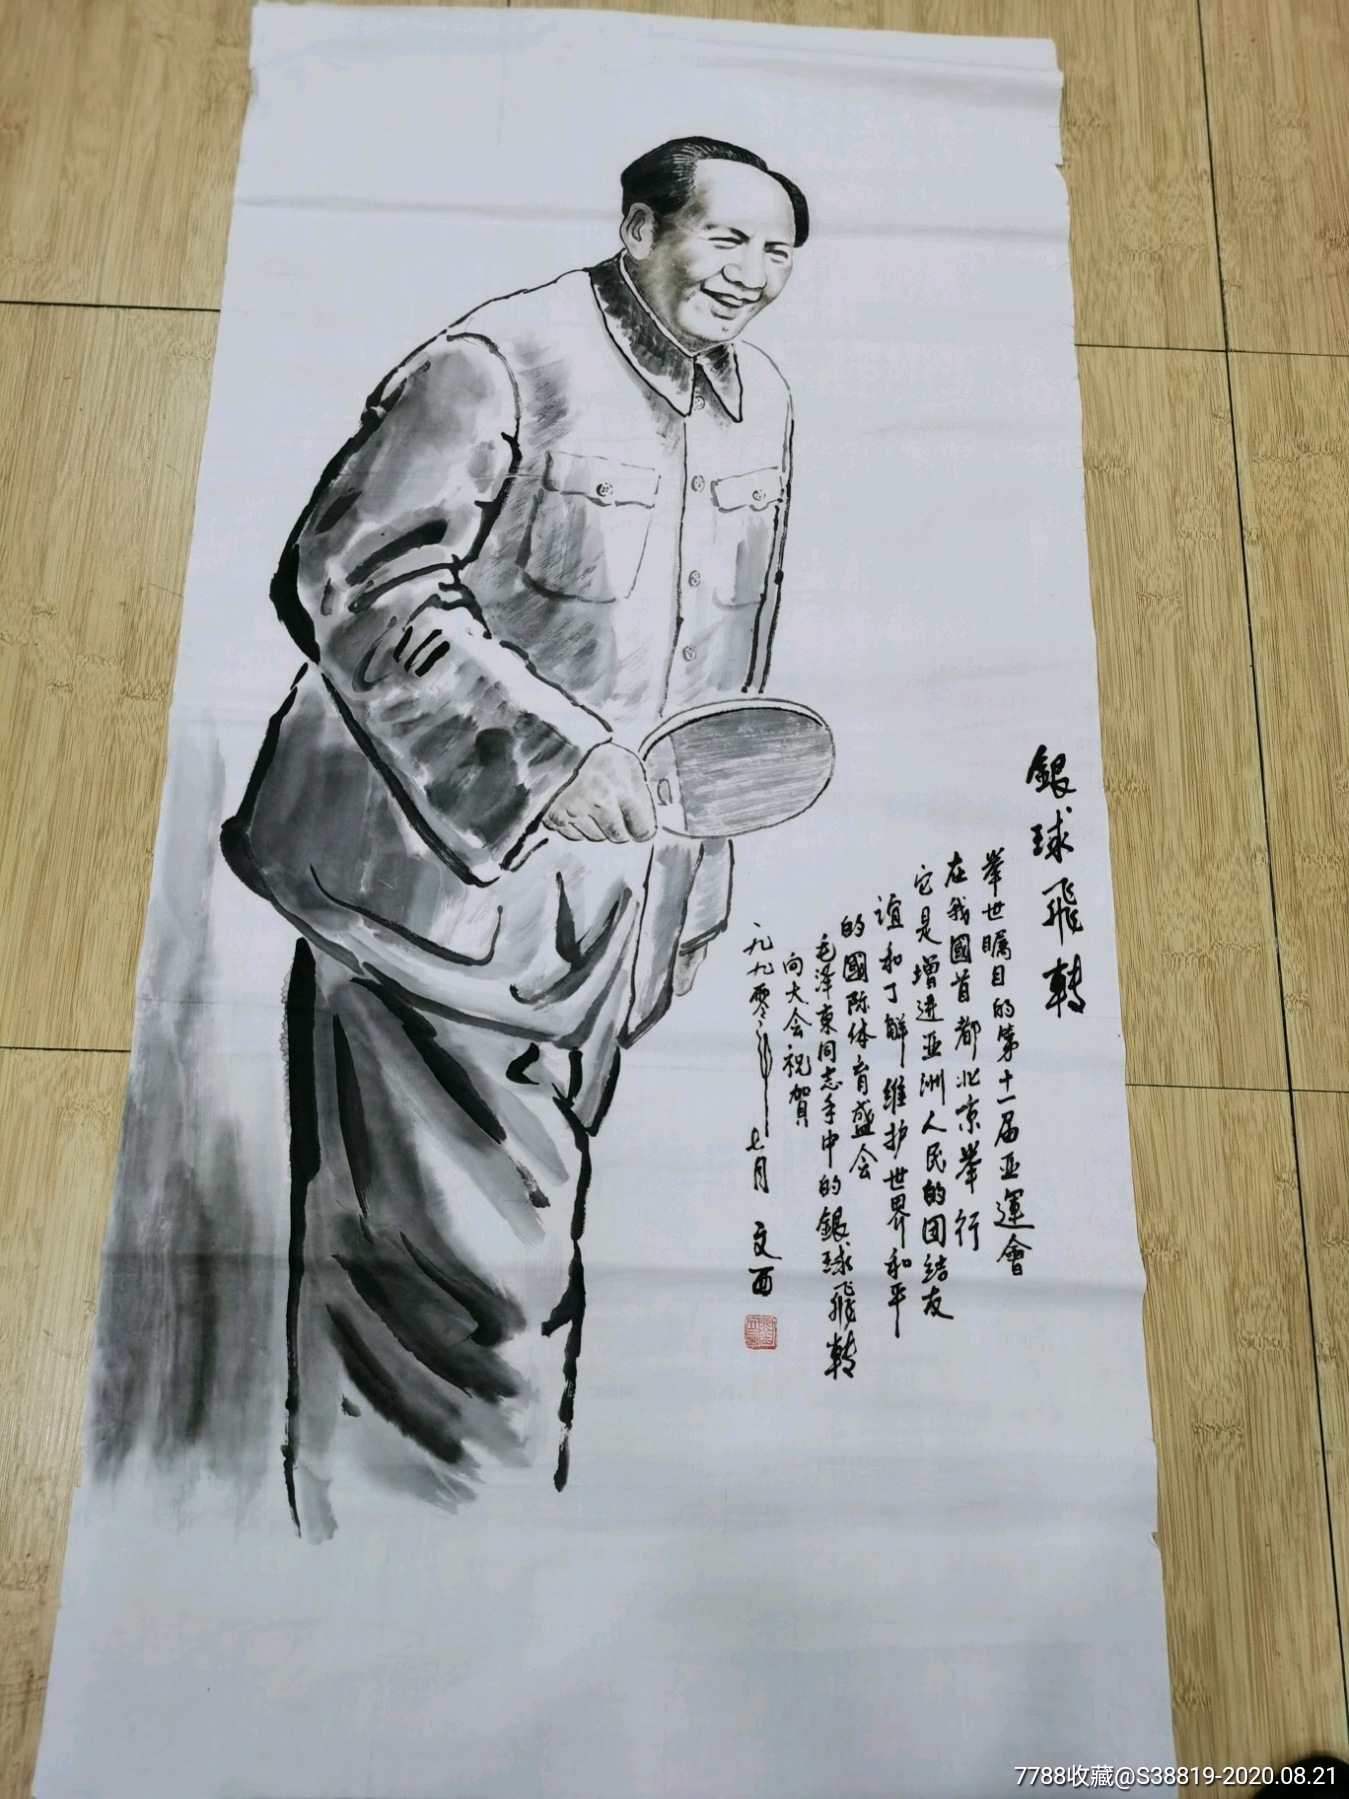 銀球飛轉
举世瞩目的第十一届亚運會
在我國首都北京举行
它是增进亚洲人民的团结友
谊和了解维护世界和平
的國际体育盛会
毛泽東同志手中的銀球飛轉
向大会祝賀
一九九零年七月 文西
7788收藏@S38819-2020.08.21